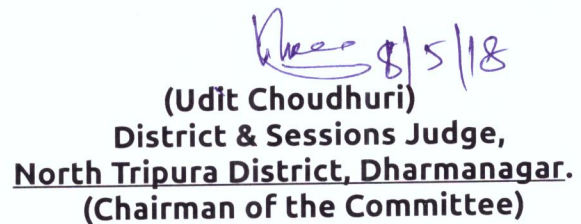 8/5/18
(Udit Choudhuri)
District & Sessions Judge,
North Tripura District, Dharmanagar.
(Chairman of the Committee)